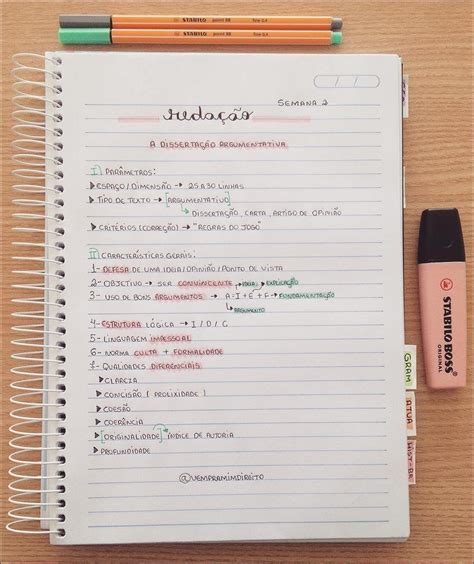 STABILO point 88 fine 0,4
STABILO point 88 fine 0,4
/ /
SEMANA 2
redação
A DISSERTAÇÃO ARGUMENTATIVA
I) PARÂMETROS:
▶ ESPAÇO/DIMENSÃO → 25 A 30 LINHAS
▶ TIPO DE TEXTO → [ARGUMENTATIVO]
↳ DISSERTAÇÃO, CARTA, ARTIGO DE OPINIÃO
▶ CRITÉRIOS (CORREÇÃO) → "REGRAS DO JOGO"
II) CARACTERÍSTICAS GERAIS:
1- DEFESA DE UMA IDEIA/OPINIÃO/PONTO DE VISTA
2- OBJETIVO → SER CONVINCENTE → IDEIA → EXPLICAÇÃO
3- USO DE BONS ARGUMENTOS → A = I + E + F → FUNDAMENTAÇÃO
↳ ARGUMENTO
4- ESTRUTURA LÓGICA → I / D / C
5- LINGUAGEM IMPESSOAL
6- NORMA CULTA + FORMALIDADE
7- QUALIDADES DIFERENCIAIS
▶ CLAREZA
▶ CONCISÃO (PROLIXIDADE)
▶ COESÃO
▶ COERÊNCIA
▶ [ORIGINALIDADE] ÍNDICE DE AUTORIA
▶ PROFUNDIDADE
@VEMPRAMIMDIREITO
GRAM
ATUA
HIST-BR
STABILO BOSS
ORIGINAL